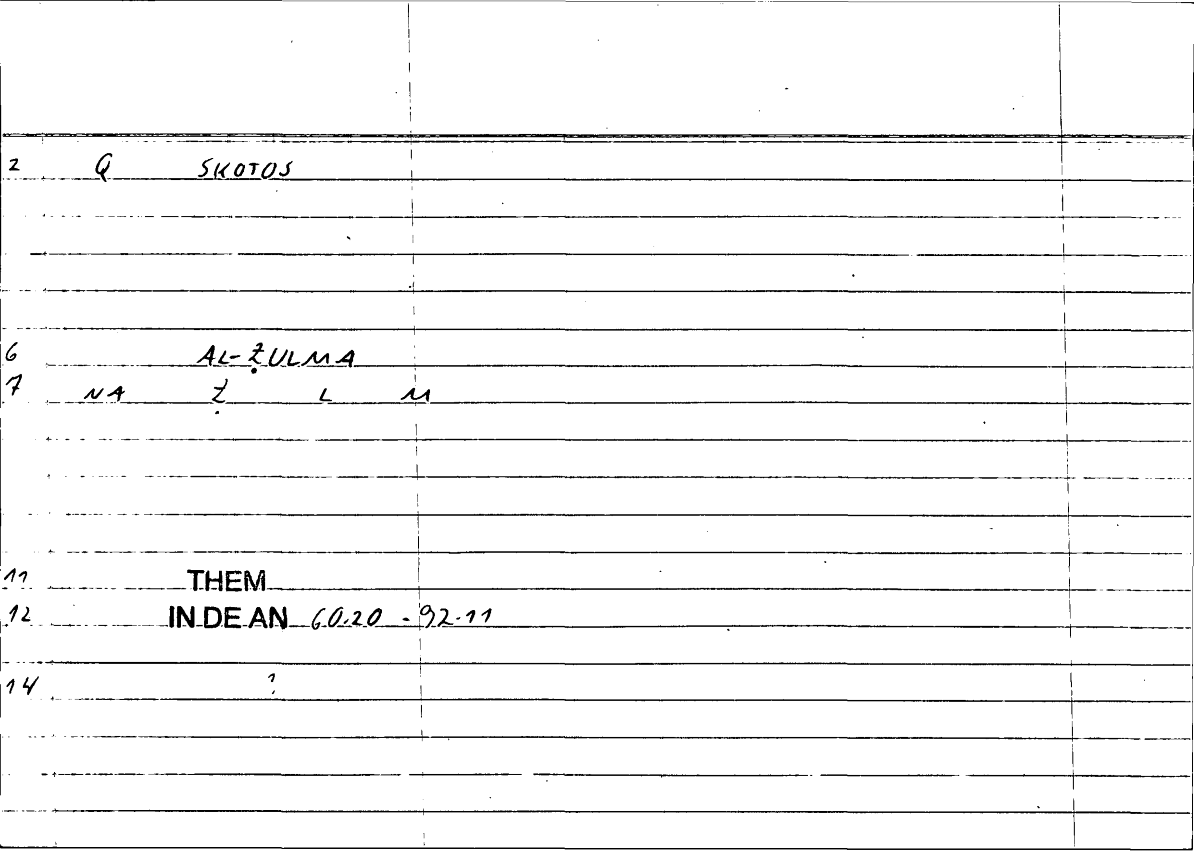 2 Q SKOTOS
6 AL-ẒULMA
7 NA Ẓ L M
11 THEM
12 IN DE AN 60.20 - 92.11
14 ?